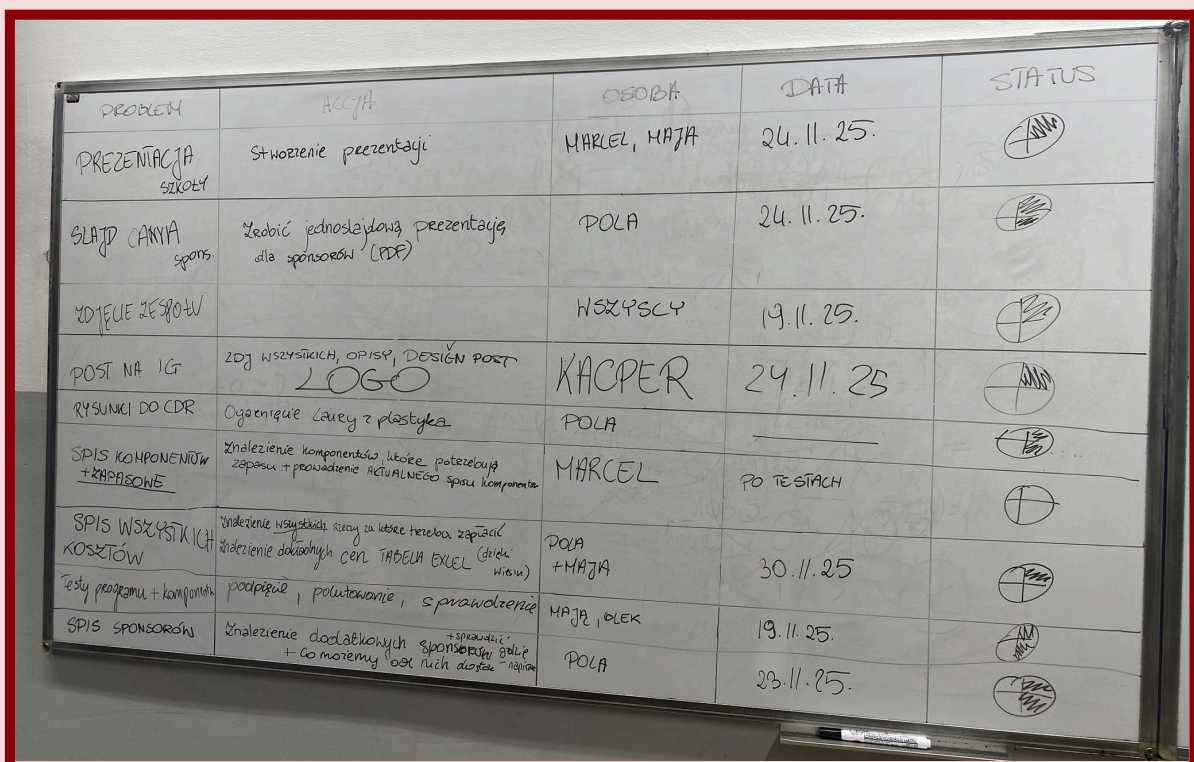 PROBLEM AKCJA OSOBA DATA STATUS
PREZENTACJA SZKOŁY
Stworzenie prezentacji
MARCEL, MAJA
24.11.25.
SLAJD CANVA spons.
Zrobić jednoslajdową prezentację
dla sponsorów (PDF)
POLA
24.11.25.
ZDJĘCIE ZESPOŁU
WSZYSCY
19.11.25.
POST NA IG
ZDJ WSZYSTKICH, OPISY, DESIGN POST
LOGO
KACPER
24.11.25
RYSUNKI DO CDR
Ogarnięcie Laury z plastyka
POLA
SPIS KOMPONENTÓW
+ZAPASOWE
Znalezienie komponentów, które potrzebują
zapasu + prowadzenie AKTUALNEGO spisu komponentów
MARCEL
PO TESTACH
SPIS WSZYSTKICH
KOSZTÓW
Znalezienie wszystkich rzeczy za które trzeba zapłacić
Znalezienie dokładnych cen TABELA EXCEL (dzięki
POLA
+MAJA
30.11.25
Testy programu + komponentów
podpięcie, polutowanie, sprawdzenie
MAJA, OLEK
19.11.25.
SPIS SPONSORÓW
Znalezienie dodatkowych sponsorów
+ sprawdzić gdzie
+ co możemy od nich dostać - napisać
POLA
23.11.25.